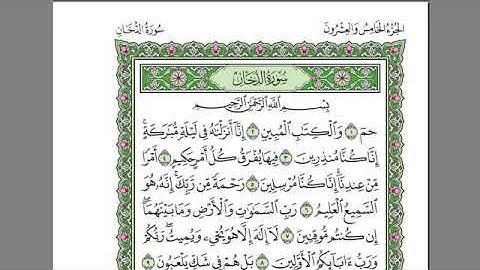 الجزء الخامس والعشرون
سورة الدخان
سُورَةُ الدُّخَانِ
بِسْمِ اللَّهِ الرَّحْمَٰنِ الرَّحِيمِ
حمٓ ۝١ وَالْكِتَابِ الْمُبِينِ ۝٢ إِنَّا أَنْزَلْنَاهُ فِي لَيْلَةٍ مُبَارَكَةٍ ۚ
إِنَّا كُنَّا مُنْذِرِينَ ۝٣ فِيهَا يُفْرَقُ كُلُّ أَمْرٍ حَكِيمٍ ۝٤ أَمْرًا
مِنْ عِنْدِنَا ۚ إِنَّا كُنَّا مُرْسِلِينَ ۝٥ رَحْمَةً مِنْ رَبِّكَ ۚ إِنَّهُ هُوَ
السَّمِيعُ الْعَلِيمُ ۝٦ رَبِّ السَّمَاوَاتِ وَالْأَرْضِ وَمَا بَيْنَهُمَا ۖ
إِنْ كُنْتُمْ مُوقِنِينَ ۝٧ لَا إِلَٰهَ إِلَّا هُوَ يُحْيِي وَيُمِيتُ ۖ رَبُّكُمْ
وَرَبُّ آبَائِكُمُ الْأَوَّلِينَ ۝٨ بَلْ هُمْ فِي شَكٍّ يَلْعَبُونَ ۝٩